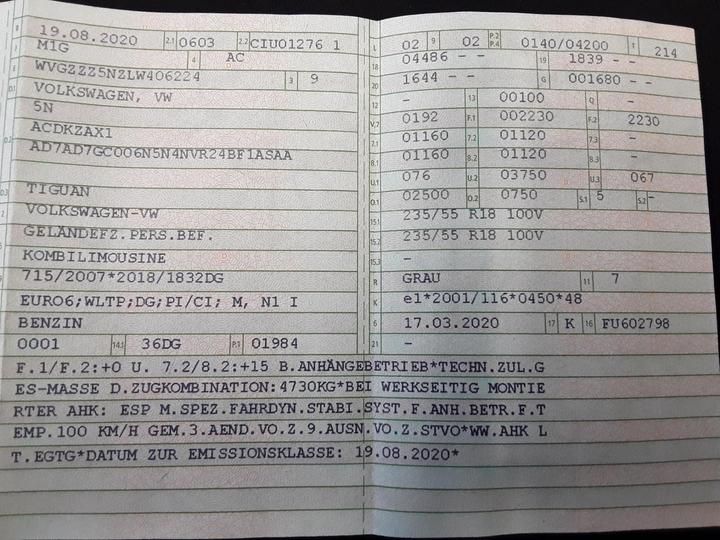 19.08.2020 2.1 0603 2.2 CIU01276 1
M1G 4 AC
WVGZZZ5NZLW406224 3 9
VOLKSWAGEN, VW
5N
ACDKZAX1
AD7AD7GC006N5N4NVR24BF1ASAA
TIGUAN
VOLKSWAGEN-VW
GELÄNDEFZ.PERS.BEF.
KOMBILIMOUSINE
715/2007*2018/1832DG
EURO6;WLTP;DG;PI/CI; M, N1 I
BENZIN
0001 14.1 36DG P.1 01984
L 02 9 02 P.2 P.4 0140/04200 T 214
18 04486 - - 19 1839 - -
20 1644 - - G 001680 - -
12 - 13 00100 Q -
V.7 0192 F.1 002230 F.2 2230
7.1 01160 7.2 01120 7.3 -
8.1 01160 8.2 01120 8.3 -
U.1 076 U.2 03750 U.3 067
O.1 02500 O.2 0750 S.1 5 S.2 -
15.1 235/55 R18 100V
15.2 235/55 R18 100V
15.3 -
R GRAU 11 7
K e1*2001/116*0450*48
6 17.03.2020 17 K 16 FU602798
21 -
F.1/F.2:+0 U. 7.2/8.2:+15 B.ANHÄNGEBETRIEB*TECHN.ZUL.G
ES-MASSE D.ZUGKOMBINATION:4730KG*BEI WERKSEITIG MONTIE
RTER AHK: ESP M.SPEZ.FAHRDYN.STABI.SYST.F.ANH.BETR.F.T
EMP.100 KM/H GEM.3.AEND.VO.Z.9.AUSN.VO.Z.STVO*WW.AHK L
T.EGTG*DATUM ZUR EMISSIONSKLASSE: 19.08.2020*